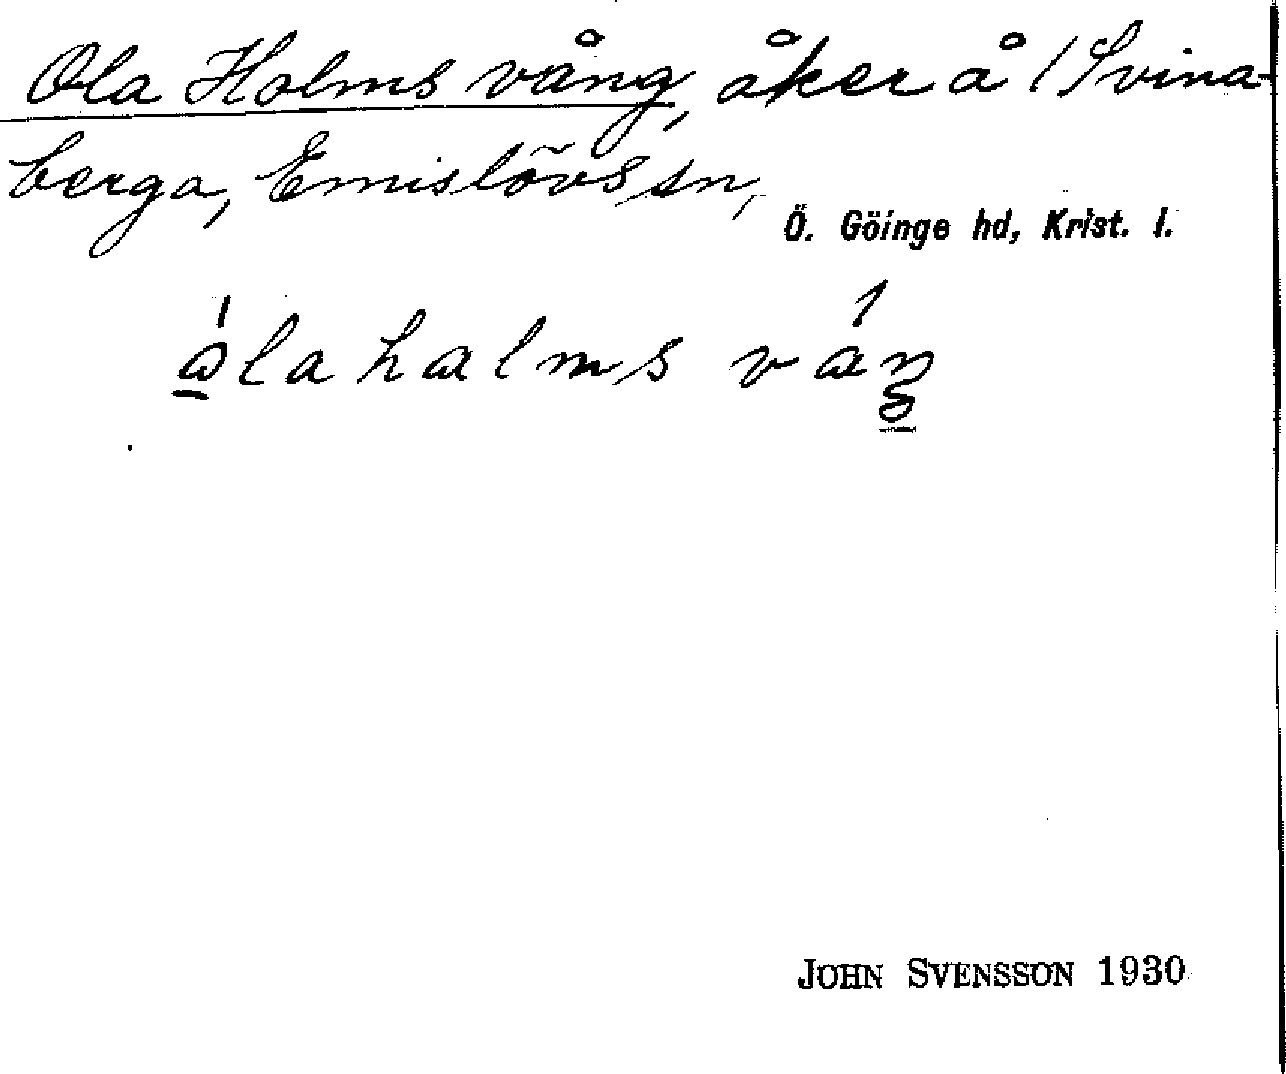 Ola Holms vång, åker å 1 Svina-
berga, Emislövs sn,
Ö. Göinge hd, Krist. l.
JOHN SVENSSON 1930